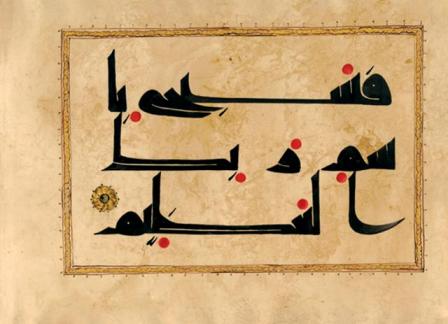 فسبح با
سم ر بك
العظيم